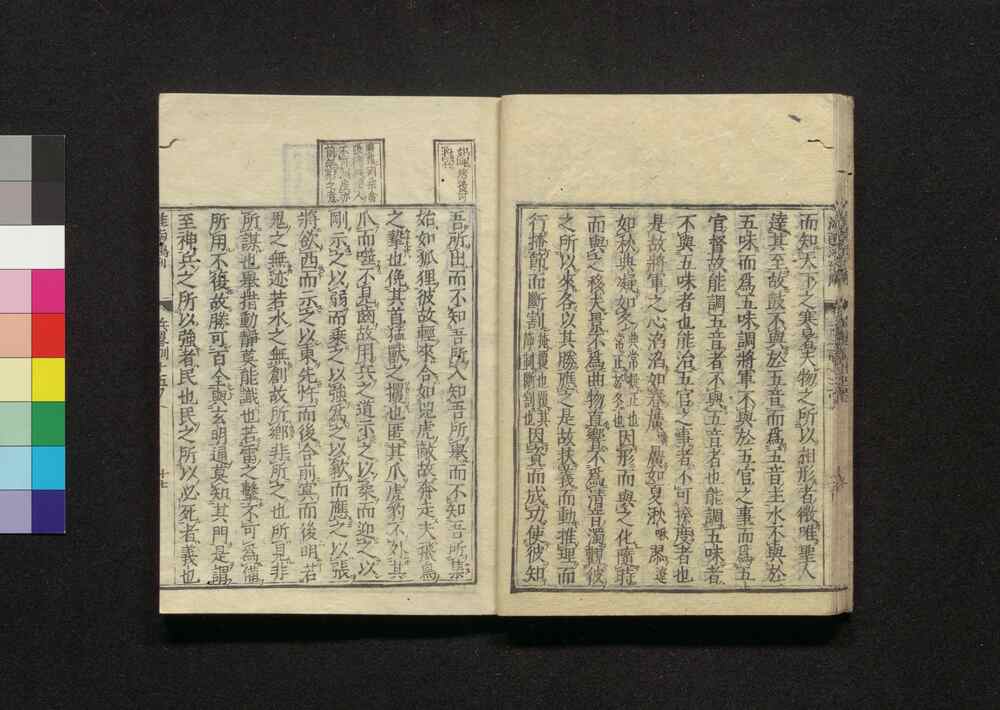 而知天下之寒暑夫物之所以相形者微唯聖人
達其至故鼓不與於五音而爲五音主水不與於
五味而爲五味調將軍不與於五官之事而爲五
官督故能調五音者不與五音者也能調五味者
不與五味者也能治五官之事者不可揆度者也
是故將軍之心滔滔如春曠曠如夏湫漻
如秋典凝如冬典常凝正也常正若冬也因形而與之化隨時
而與之移夫景不爲曲物直響不爲清音濁觀彼
之所以來各以其勝應之是故扶義而動推理而
行掩節而斷割因資而成功使彼知
吾所出而不知吾所入知吾所舉而不知吾所集
始如狐狸彼故輕來合如兕虎敵故奔走夫飛鳥
之摯也俛其首猛獸之攫也匿其爪虎豹不外其
爪而噬不見齒故用兵之道示之以柔而迎之以
剛示之以弱而乘之以強爲之以歙而應之以張
將欲西而示之以東先忤而後合前冥而後明若
鬼之無迹若水之無創故所鄉非所之也所見非
所謀也舉措動靜莫能識也若雷之擊不可爲備
所用不復故勝可百全與玄明通莫知其門是謂
至神兵之所以強者民也民之所以必死者義也
十七